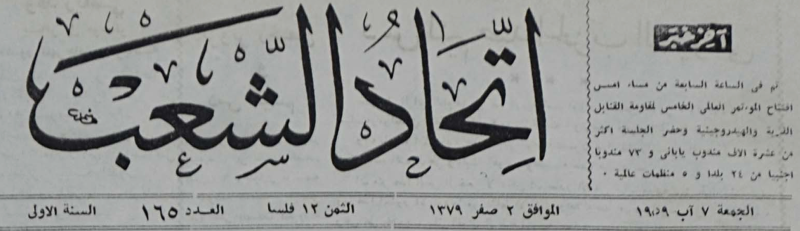 اتحاد الشعب
آخر خبر
تم في الساعة السابعة من مساء امس
افتتاح المؤتمر العالمي الخامس لمقاومة القنابل
الذرية والهيدروجينية وحضر الجلسة اكثر
من عشرة الاف مندوب ياباني و ٧٣ مندوبا
اجنبيا من ٢٤ بلدا و ٥ منظمات عالمية ٠
الجمعة ٧ آب ١٩٥٩ الموافق ٢ صفر ١٣٧٩ الثمن ١٢ فلسا العدد ١٦٥ السنة الاولى